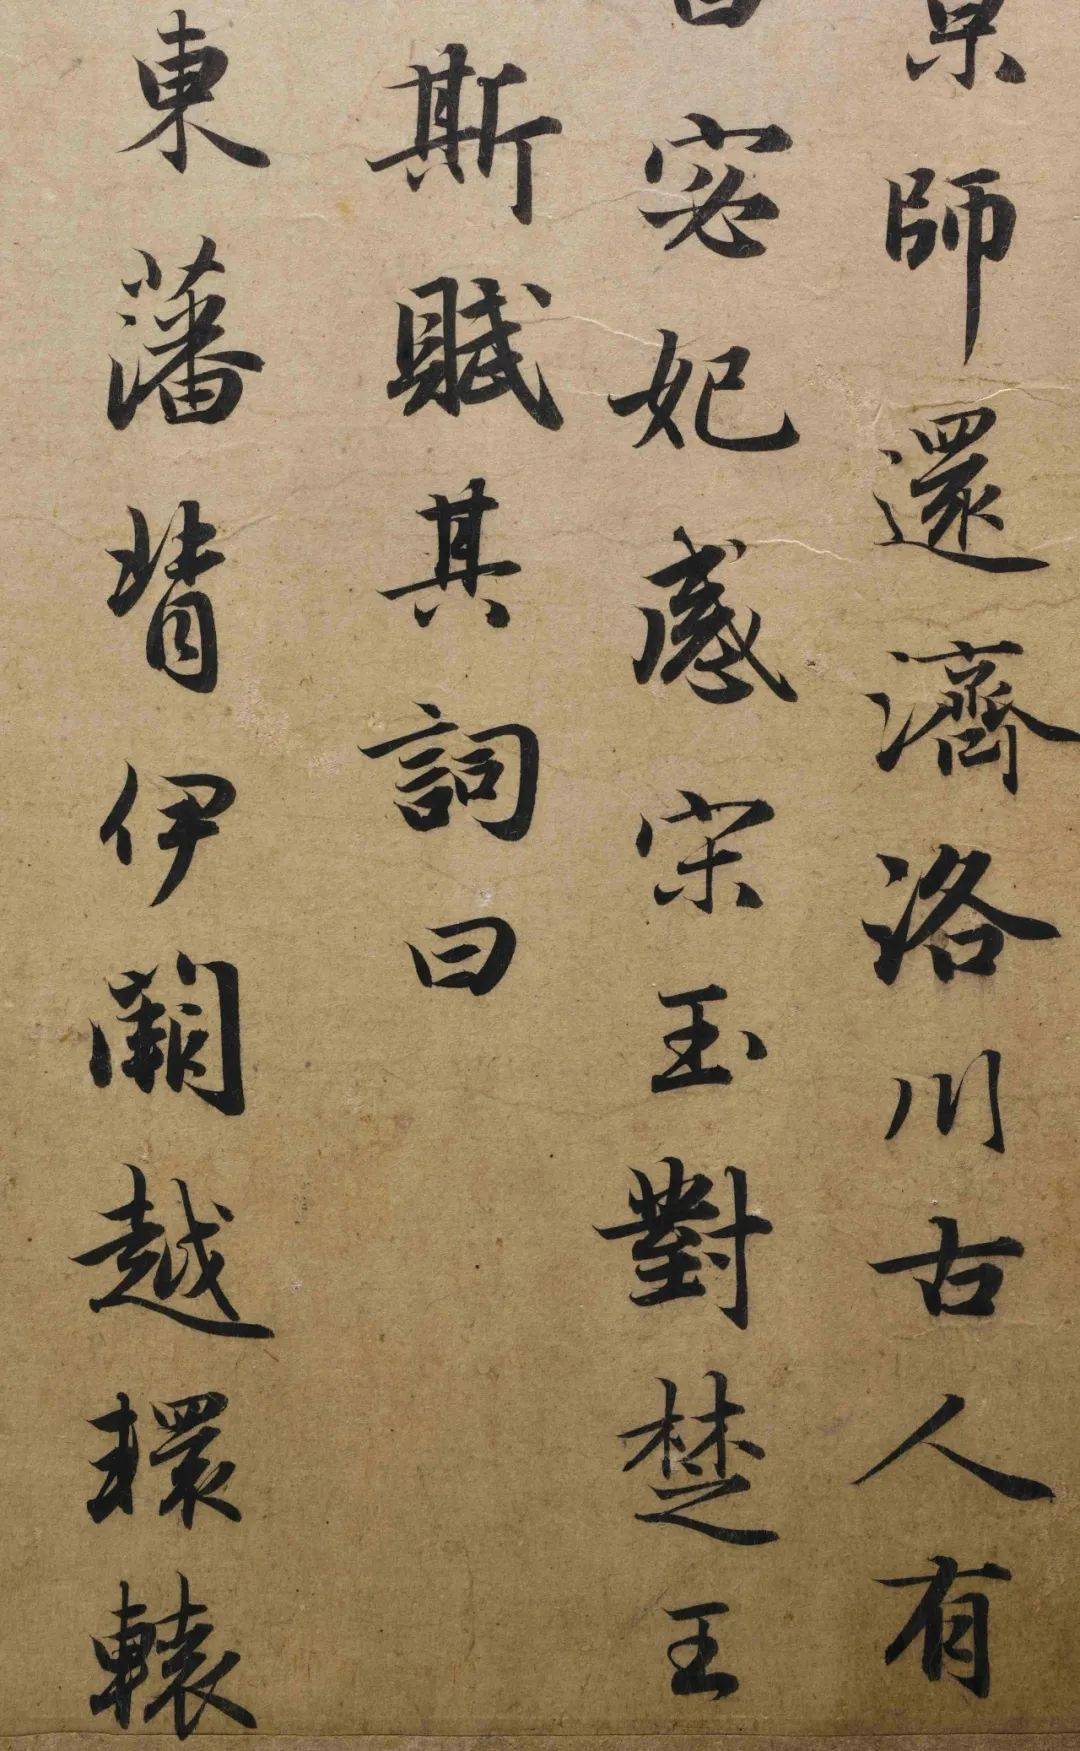 京師還濟洛川古人有
曰宓妃感宋玉對楚王
斯賦其詞曰
東藩背伊闕越轘轅